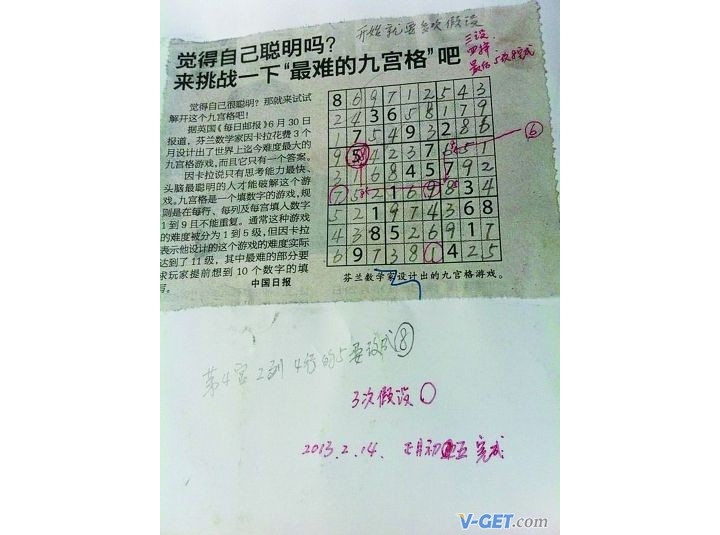 开始就要多次假设
觉得自己聪明吗？
来挑战一下“最难的九宫格”吧
觉得自己很聪明？那就来试试
解开这个九宫格吧！
据英国《每日邮报》6月30日
报道，芬兰数学家因卡拉花费3个
月设计出了世界上迄今难度最大的
九宫格游戏，而且它只有一个答案。
因卡拉说只有思考能力最快、
头脑最聪明的人才能破解这个游
戏。九宫格是一个填数字的游戏，规
则是在每行、每列及每宫填入数字
1到9且不能重复。通常这种游戏
的难度被分为1到5级，但因卡拉
表示他设计的这个游戏的难度实际
达到了11级，其中最难的部分要
求玩家提前想到10个数字的填
写。
中国日报
三设
8 6 9 7 1 2 5 4 3
2 4 3 6 5 8 1 7 9
1 7 5 4 9 3 2 8 6
9 5 4 2 3 7
3 1 6 8 4 5 7 9 2
7 5 2 1 6 9 8 3 4
5 2 1 9 7 4 3 6 8
4 3 8 5 2 6 9 1 7
6 9 7 3 8 1 4 2 5
6
芬兰数学家设计出的九宫格游戏。
第4宫2列4行的5要改成8
3次假设
2013.2.14. 正月初五完成
V-GET.com